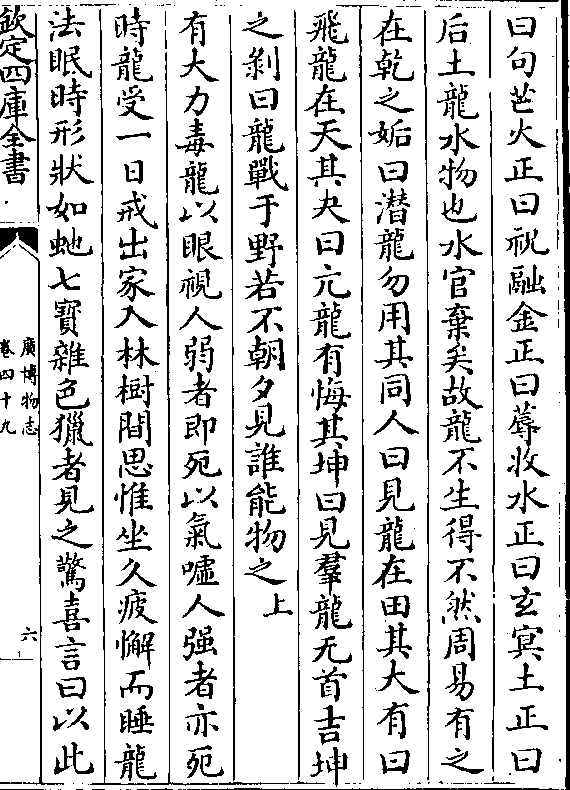 曰句芒火正曰祝融金正曰蓐收水正曰玄冥土正曰
后土龍水物也水官棄矣故龍不生得不然周易有之
在乾之姤曰潛龍勿用其同人曰見龍在田其大有曰
飛龍在天其夬曰亢龍有悔其坤曰見羣龍无首吉坤
之剝曰龍戰于野若不朝夕見誰能物之上
有大力毒龍以眼視人弱者即死以氣噓人强者亦死
時龍受一日戒出家入林樹間思惟坐久疲懈而睡龍
法眠時形狀如虵七寳雜色獵者見之驚喜言曰以此
欽定四庫全書
廣博物志
卷四十九
六